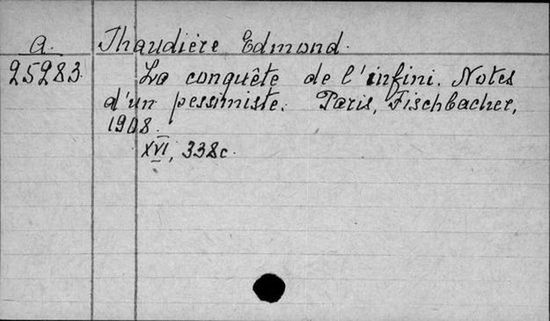 A. Thaudière Edmond.
25283. La conquête de l'infini. Notes
d'un pessimiste. Paris, Fischbacher,
1908.
XVI, 338c.